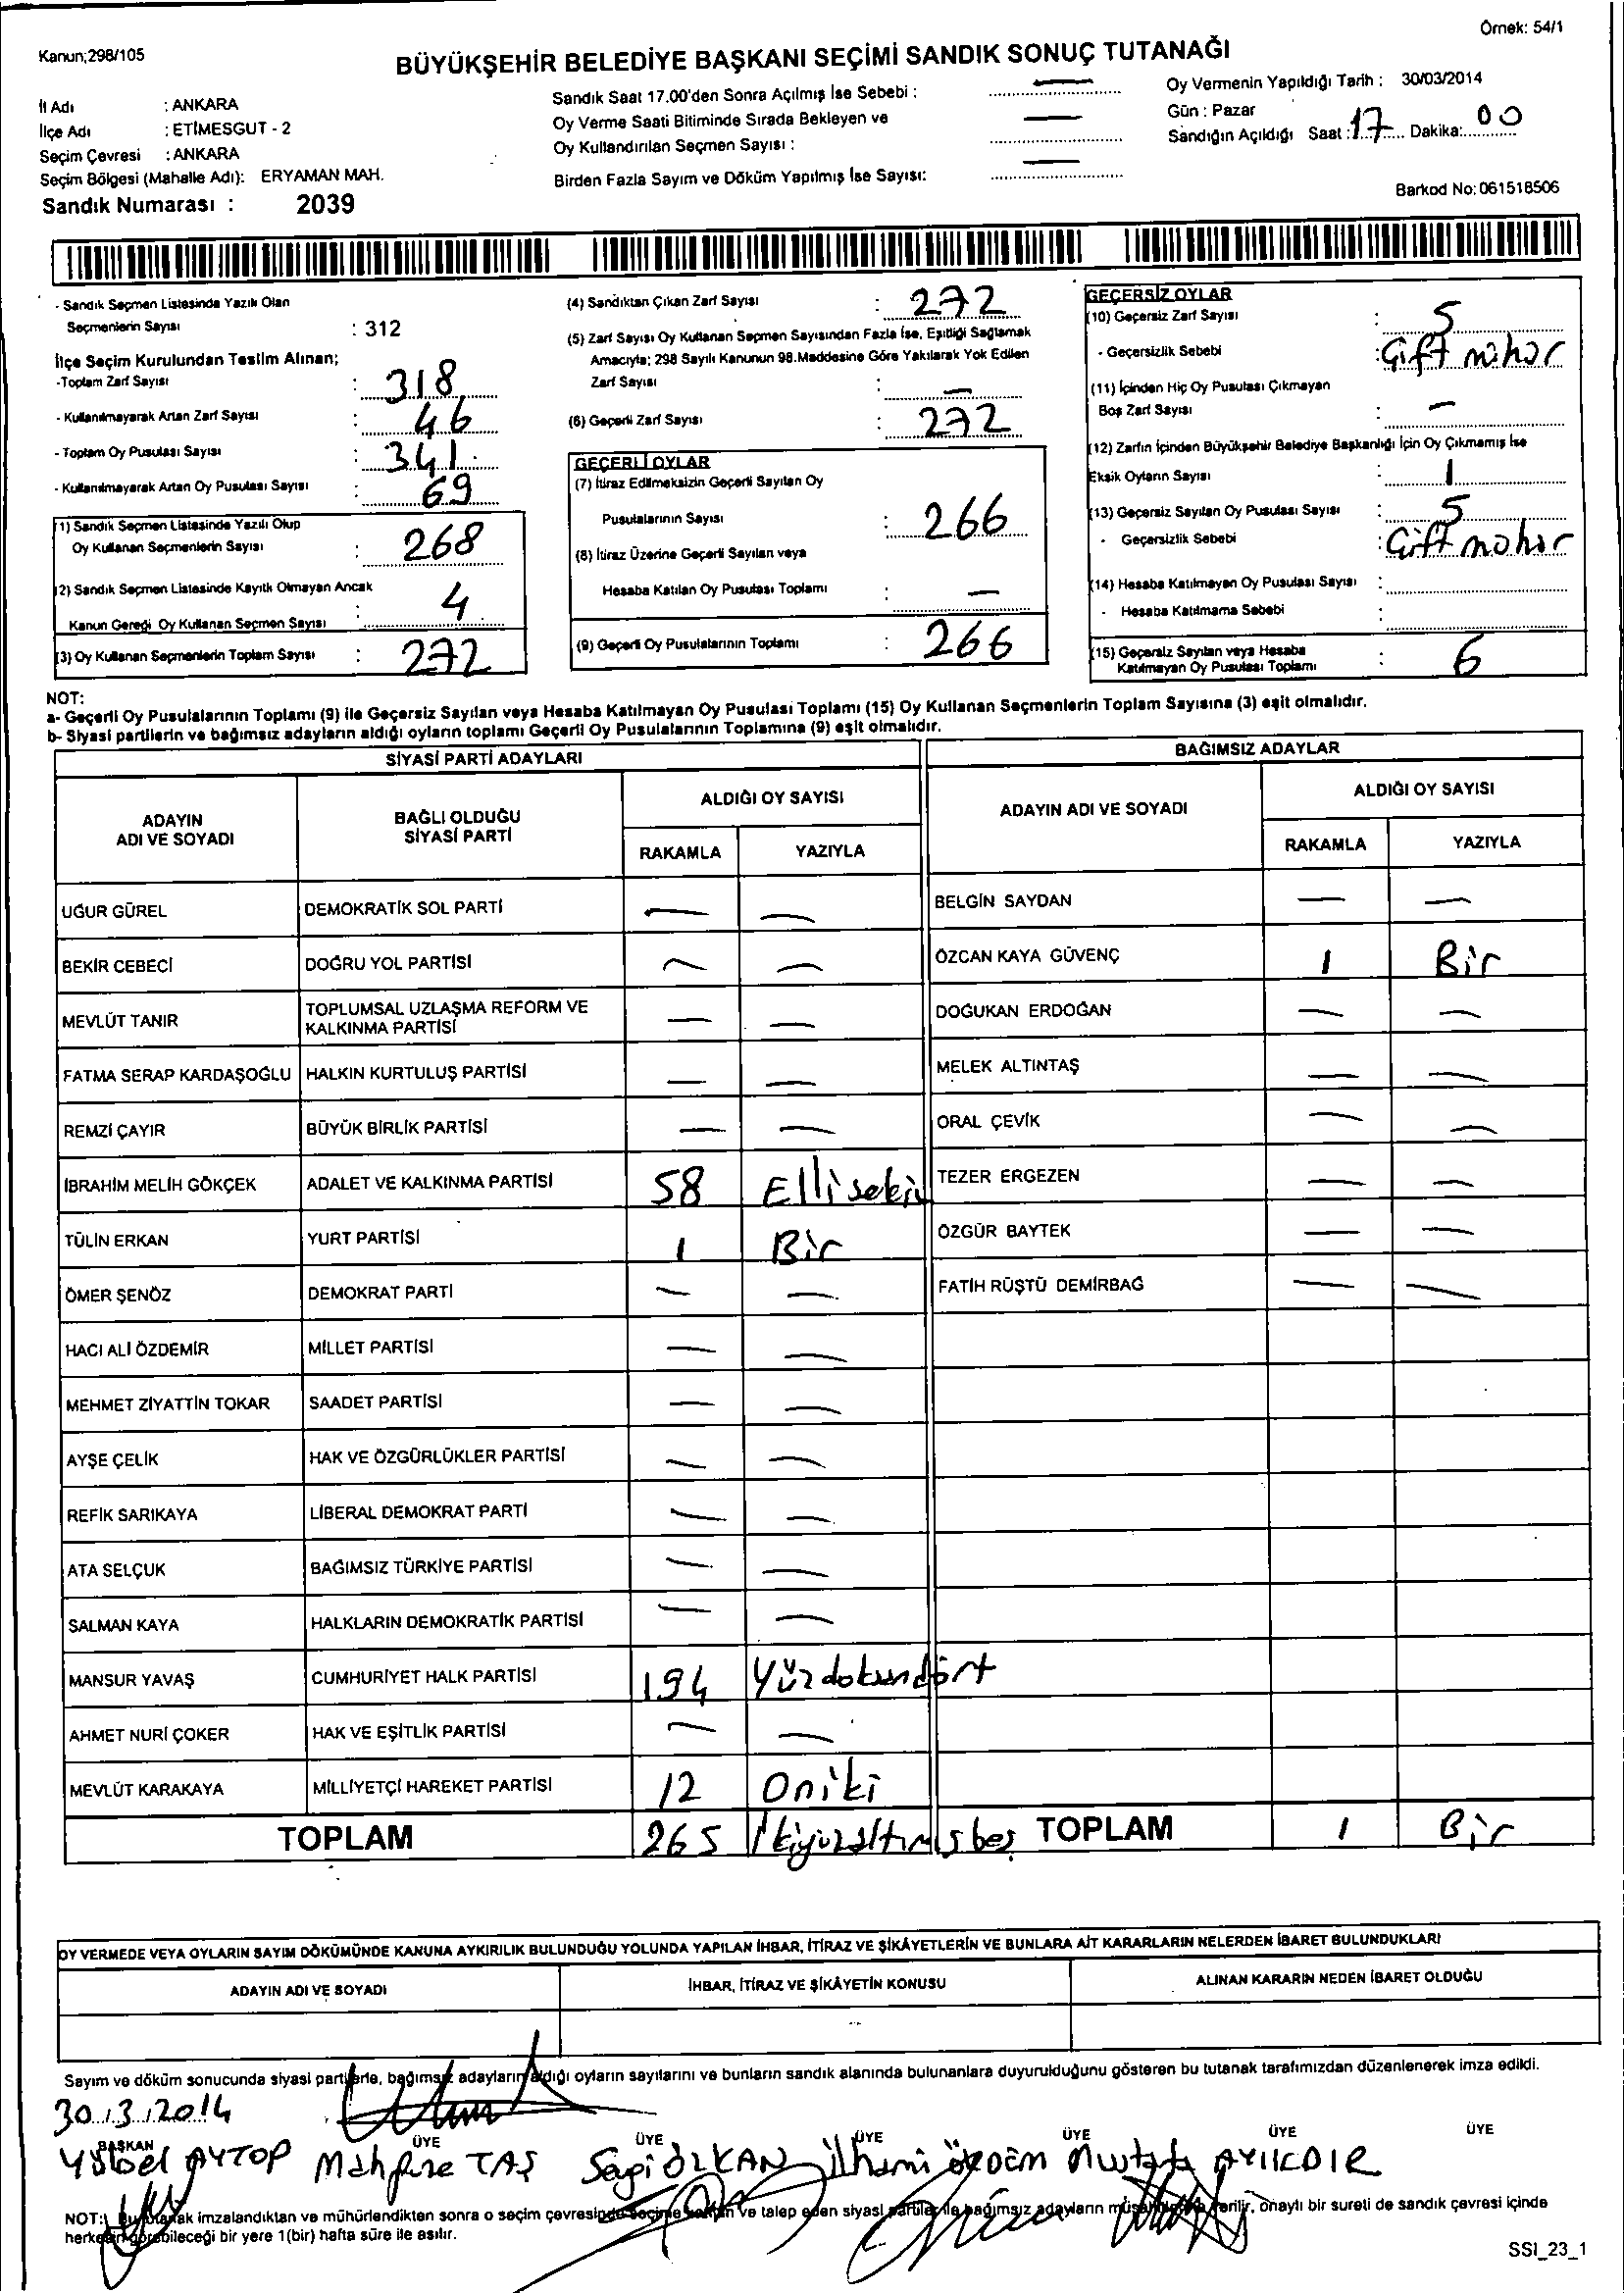 Örnek: 54/1
Kanun;298/105
BÜYÜKŞEHİR BELEDİYE BAŞKANI SEÇİMİ SANDIK SONUÇ TUTANAĞI
İl Adı : ANKARA
İlçe Adı : ETİMESGUT - 2
Seçim Çevresi : ANKARA
Seçim Bölgesi (Mahalle Adı): ERYAMAN MAH.
Sandık Numarası : 2039
Sandık Saat 17.00'den Sonra Açılmış İse Sebebi : —
Oy Verme Saati Bitiminde Sırada Bekleyen ve
Oy Kullandırılan Seçmen Sayısı : —
Birden Fazla Sayım ve Döküm Yapılmış İse Sayısı: —
Oy Vermenin Yapıldığı Tarih : 30/03/2014
Gün : Pazar
Sandığın Açıldığı Saat : 17 Dakika: 00
Barkod No: 061518506
- Sandık Seçmen Listesinde Yazılı Olan
Seçmenlerin Sayısı : 312
İlçe Seçim Kurulundan Teslim Alınan;
-Toplam Zarf Sayısı : 318
- Kullanılmayarak Artan Zarf Sayısı : 46
- Toplam Oy Pusulası Sayısı : 341
- Kullanılmayarak Artan Oy Pusulası Sayısı : 69
(1) Sandık Seçmen Listesinde Yazılı Olup
Oy Kullanan Seçmenlerin Sayısı : 268
(2) Sandık Seçmen Listesinde Kayıtlı Olmayan Ancak
Kanun Gereği Oy Kullanan Seçmen Sayısı : 4
(3) Oy Kullanan Seçmenlerin Toplam Sayısı : 272
(4) Sandıktan Çıkan Zarf Sayısı : 272
(5) Zarf Sayısı Oy Kullanan Seçmen Sayısından Fazla İse, Eşitliği Sağlamak
Amacıyla; 298 Sayılı Kanunun 98.Maddesine Göre Yakılarak Yok Edilen
Zarf Sayısı : —
(6) Geçerli Zarf Sayısı : 272
GEÇERLİ OYLAR
(7) İtiraz Edilmeksizin Geçerli Sayılan Oy
Pusulalarının Sayısı : 266
(8) İtiraz Üzerine Geçerli Sayılan veya
Hesaba Katılan Oy Pusulası Toplamı : —
(9) Geçerli Oy Pusulalarının Toplamı : 266
GEÇERSİZ OYLAR
(10) Geçersiz Zarf Sayısı : 5
- Geçersizlik Sebebi : Çift mühür
(11) İçinden Hiç Oy Pusulası Çıkmayan
Boş Zarf Sayısı : —
(12) Zarfın İçinden Büyükşehir Belediye Başkanlığı İçin Oy Çıkmamış İse
Eksik Oyların Sayısı : 1
(13) Geçersiz Sayılan Oy Pusulası Sayısı : 5
- Geçersizlik Sebebi : Çift mühür
(14) Hesaba Katılmayan Oy Pusulası Sayısı :
- Hesaba Katılmama Sebebi :
(15) Geçersiz Sayılan veya Hesaba
Katılmayan Oy Pusulası Toplamı : 6
NOT:
a- Geçerli Oy Pusulalarının Toplamı (9) ile Geçersiz Sayılan veya Hesaba Katılmayan Oy Pusulası Toplamı (15) Oy Kullanan Seçmenlerin Toplam Sayısına (3) eşit olmalıdır.
b- Siyasi partilerin ve bağımsız adayların aldığı oyların toplamı Geçerli Oy Pusulalarının Toplamına (9) eşit olmalıdır.
SİYASİ PARTİ ADAYLARI
ADAYIN ADI VE SOYADI BAĞLI OLDUĞU SİYASİ PARTİ ALDIĞI OY SAYISI
RAKAMLA YAZIYLA
UĞUR GÜREL DEMOKRATİK SOL PARTİ — —
BEKİR CEBECİ DOĞRU YOL PARTİSİ — —
MEVLÜT TANIR TOPLUMSAL UZLAŞMA REFORM VE KALKINMA PARTİSİ — —
FATMA SERAP KARDAŞOĞLU HALKIN KURTULUŞ PARTİSİ — —
REMZİ ÇAYIR BÜYÜK BİRLİK PARTİSİ — —
İBRAHİM MELİH GÖKÇEK ADALET VE KALKINMA PARTİSİ 58 Ellisekiz
TÜLİN ERKAN YURT PARTİSİ 1 Bir
ÖMER ŞENÖZ DEMOKRAT PARTİ — —
HACI ALİ ÖZDEMİR MİLLET PARTİSİ — —
MEHMET ZİYATTİN TOKAR SAADET PARTİSİ — —
AYŞE ÇELİK HAK VE ÖZGÜRLÜKLER PARTİSİ — —
REFİK SARIKAYA LİBERAL DEMOKRAT PARTİ — —
ATA SELÇUK BAĞIMSIZ TÜRKİYE PARTİSİ — —
SALMAN KAYA HALKLARIN DEMOKRATİK PARTİSİ — —
MANSUR YAVAŞ CUMHURİYET HALK PARTİSİ 194 Yüzdoksandört
AHMET NURİ ÇOKER HAK VE EŞİTLİK PARTİSİ — —
MEVLÜT KARAKAYA MİLLİYETÇİ HAREKET PARTİSİ 12 Oniki
TOPLAM 265 İkiyüzaltmışbeş
BAĞIMSIZ ADAYLAR
ADAYIN ADI VE SOYADI ALDIĞI OY SAYISI
RAKAMLA YAZIYLA
BELGİN SAYDAN — —
ÖZCAN KAYA GÜVENÇ 1 Bir
DOĞUKAN ERDOĞAN — —
MELEK ALTINTAŞ — —
ORAL ÇEVİK — —
TEZER ERGEZEN — —
ÖZGÜR BAYTEK — —
FATİH RÜŞTÜ DEMİRBAĞ — —
TOPLAM 1 Bir
OY VERMEDE VEYA OYLARIN SAYIM DÖKÜMÜNDE KANUNA AYKIRILIK BULUNDUĞU YOLUNDA YAPILAN İHBAR, İTİRAZ VE ŞİKÂYETLERİN VE BUNLARA AİT KARARLARIN NELERDEN İBARET BULUNDUKLARI
ADAYIN ADI VE SOYADI İHBAR, İTİRAZ VE ŞİKÂYETİN KONUSU ALINAN KARARIN NEDEN İBARET OLDUĞU
Sayım ve döküm sonucunda siyasi partilerle, bağımsız adayların aldığı oyların sayılarını ve bunların sandık alanında bulunanlara duyurulduğunu gösteren bu tutanak tarafımızdan düzenlenerek imza edildi.
30.3.2014
BAŞKAN ÜYE ÜYE ÜYE ÜYE ÜYE ÜYE
AYTOP TAŞ ÖZKAN İlhami Mustafa
NOT: Bu tutanak imzalandıktan ve mühürlendikten sonra o seçim çevresinde seçime katılan ve talep eden siyasi partiler ile bağımsız adayların müşahitlerine verilir, onaylı bir sureti de sandık çevresi içinde
herkesin görebileceği bir yere 1(bir) hafta süre ile asılır.
SSI_23_1